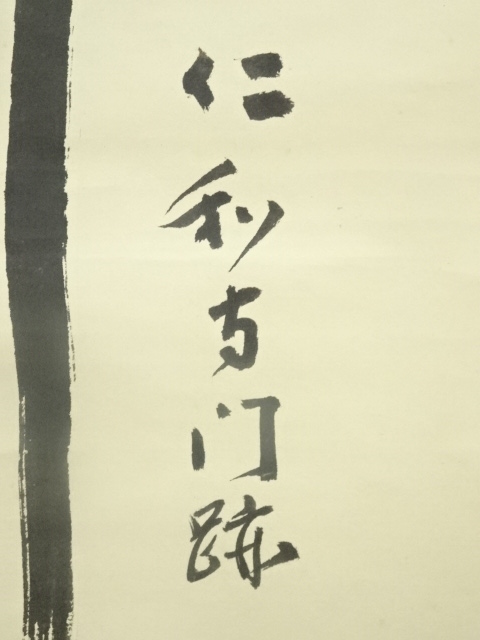 仁和寺門跡